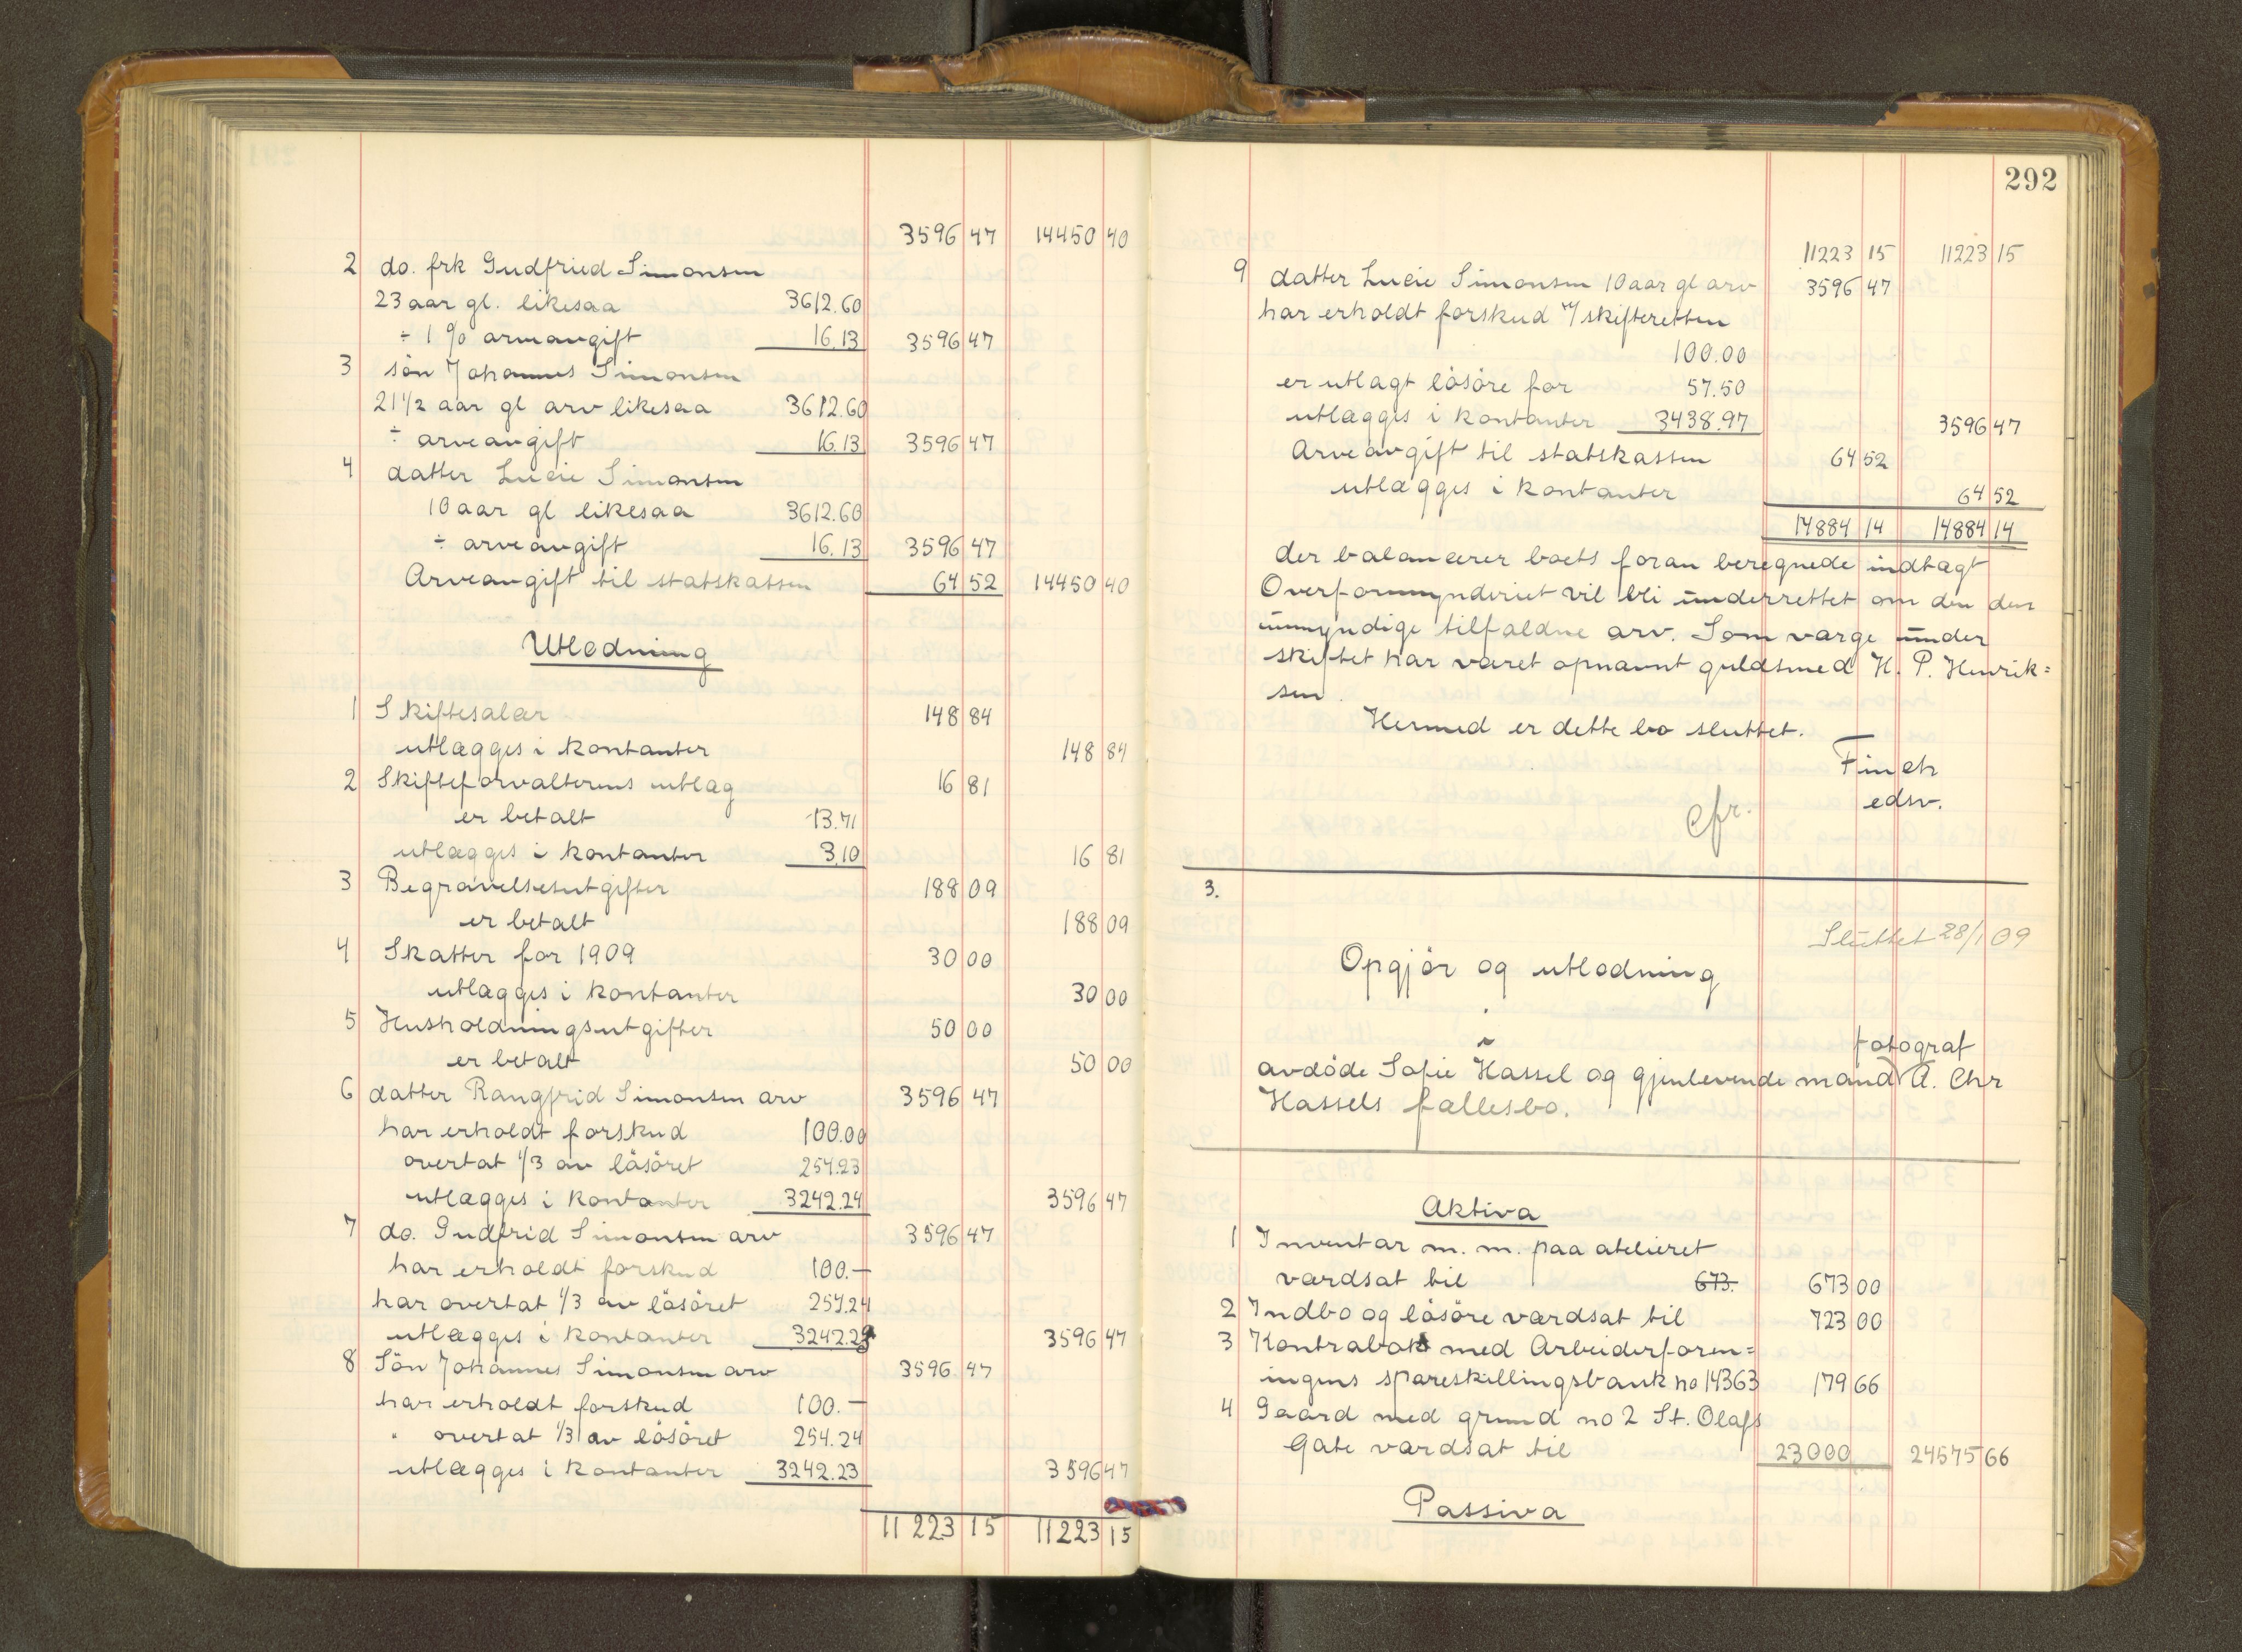 3596 47 14450 40
2 do. frk Gudfried Simonsen
23 aar gl. likesaa 3612.60
÷ 1 % arveavgift 16.13 3596 47
3 sön Johannes Simonsen
21 1/2 aar gl arv likesaa 3612.60
÷ arveavgift 16.13 3596 47
4 datter Lucie Simonsen
10 aar gl likesaa 3612.60
÷ arveavgift 16.13 3596 47
Arveavgift til statskassen 64 52 14450 40
Utlodning
1 Skiftesalær 148 84
utlægges i kontanter 148 84
2 Skifteforvalterens utlæg 16 81
er betalt 13.71
utlægges i kontanter 3.10 16 81
3 Begravelsesutgifter 188 09
er betalt 188 09
4 Skatter for 1909 30 00
utlægges i kontanter 30 00
5 Husholdningsutgifter 50 00
er betalt 50 00
6 datter Rangfrid Simonsen arv 3596 47
har erholdt forskud 100.00
overtat 1/3 av lösöret 254.23
utlægges i kontanter 3242.24 3596 47
7 do. Gudfrid Simonsen arv 3596 47
har erholdt forskud 100.—
har overtat 1/3 av lösöret 254.24
utlægges i kontanter 3242.23 3596 47
8 Sön Johannes Simonsen arv 3596 47
har erholdt forskud 100.—
" overtat 1/3 av lösöret 254.24
utlægges i kontanter 3242.23 3596 47
11223 15 11223 15
292
11223 15 11223 15
9 datter Lucie Simonsen 10 aar gl arv 3596 47
har erholdt forskud v/ skifteretten
100.00
er utlagt lösöre for 57.50
utlægges i kontanter 3438.97 3596 47
Arveavgift til statskassen 64 52
utlægges i kontanter 64 52
14884 14 14884 14
der balancerer boets foran beregnede indtægt
Overformynderiet vil bli underrettet om den den
umyndige tilfaldne arv. Som værge under
skiftet har været opnævnt guldsmed H. P. Henrik=
sen.
Hermed er dette bo sluttet.
Finck
edsv.
cfr.
3.
Sluttet 28/1 09
Opgjör og utlodning
i
fotograf
avdöde Sofie Hassel og gjenlevende mand A. Chr
Hassels fællesbo.
Aktiva
1 Inventar m. m. paa atelieret
værdsat til 673. 673 00
2 Indbo og lösöre værdsat til 723 00
3 Kontrabok med Arbeiderforen=
ingens spareskillingsbank no 14363 179 66
4 Gaard med grund no 2 St. Olafs
Gate værdsat til 23000 24575 66
Passiva